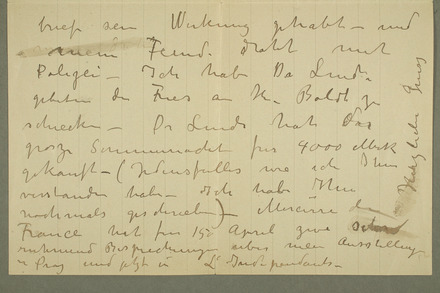 brief sein Wirkung gehabt – und
mein Feind droht mit
Polizei – Ich habe Da Linde
gebeten den Fries an H. Boldt zu
schicken – Dr Linde hat das
grosze Sommernacht für 4000 Mark
gekauft – (Jedensfalles wie ich Ihm
verstanden habe – Ich habe Ihm
nochmals geschrieben) – Mercure de
France hat für 15 April zwei
ruhmend Besprechungen uber mein Ausstellungen
in Prag und jetzt in L'Independants –
Herzliche